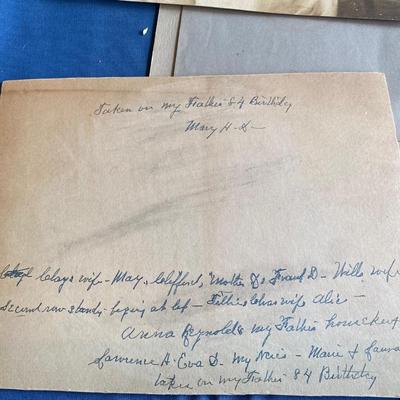 Taken on my Father's 84 Birthday
Mary H-D-
Clays wife - May, Clifford, Mother D, Frank D - Wills wife
Second row standing begin at left - wife Alice -
Anna Reynolds my Father
Lawrence H. Eva D. My Neice - Marie &
taken on my Father's 84 Birthday